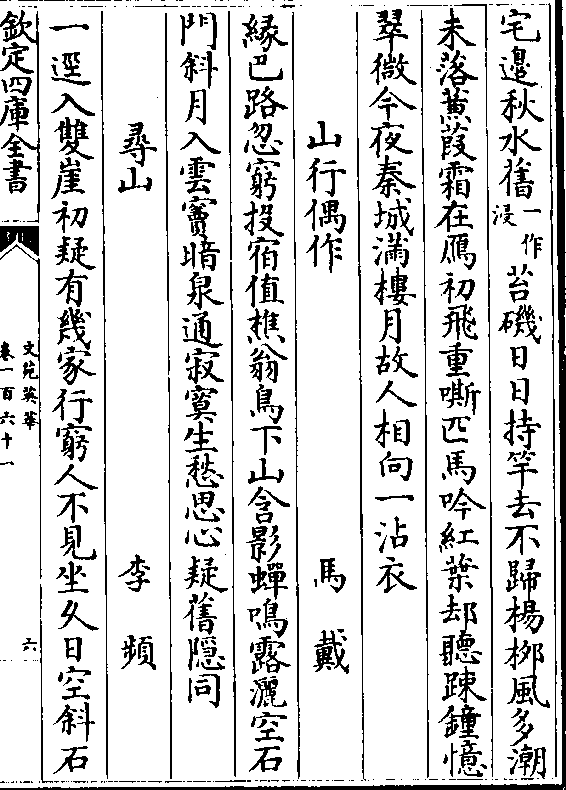 宅邉秋水舊一作浸苔磯日日持竿去不歸楊栁風多潮
未落蒹葭霜在鴈初飛重嘶匹馬吟紅葉却聽踈鐘憶
翠微今夜秦城滿樓月故人相向一沾衣
山行偶作 馬戴
緣巴路忽窮投宿值樵翁鳥下山含影蟬鳴露灑空石
門斜月入雲竇暗泉通寂寞生愁思心疑舊隠同
尋山 李頻
一逕入雙崖初疑有幾家行窮人不見坐久日空斜石
欽定四庫全書
文苑英華
卷一百六十一
六